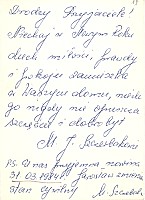 Drodzy Przyjaciele!
Niechaj w Nowym Roku
duch miłości, prawdy
i pokoju zamieszka
w Waszym domu, niech
go nigdy nie opuszcza
szczęście i dobrobyt
M. J.
PS. U nas przyjemna nowina
31.03.1984 Jarosław zmienia
stan cywilny M.